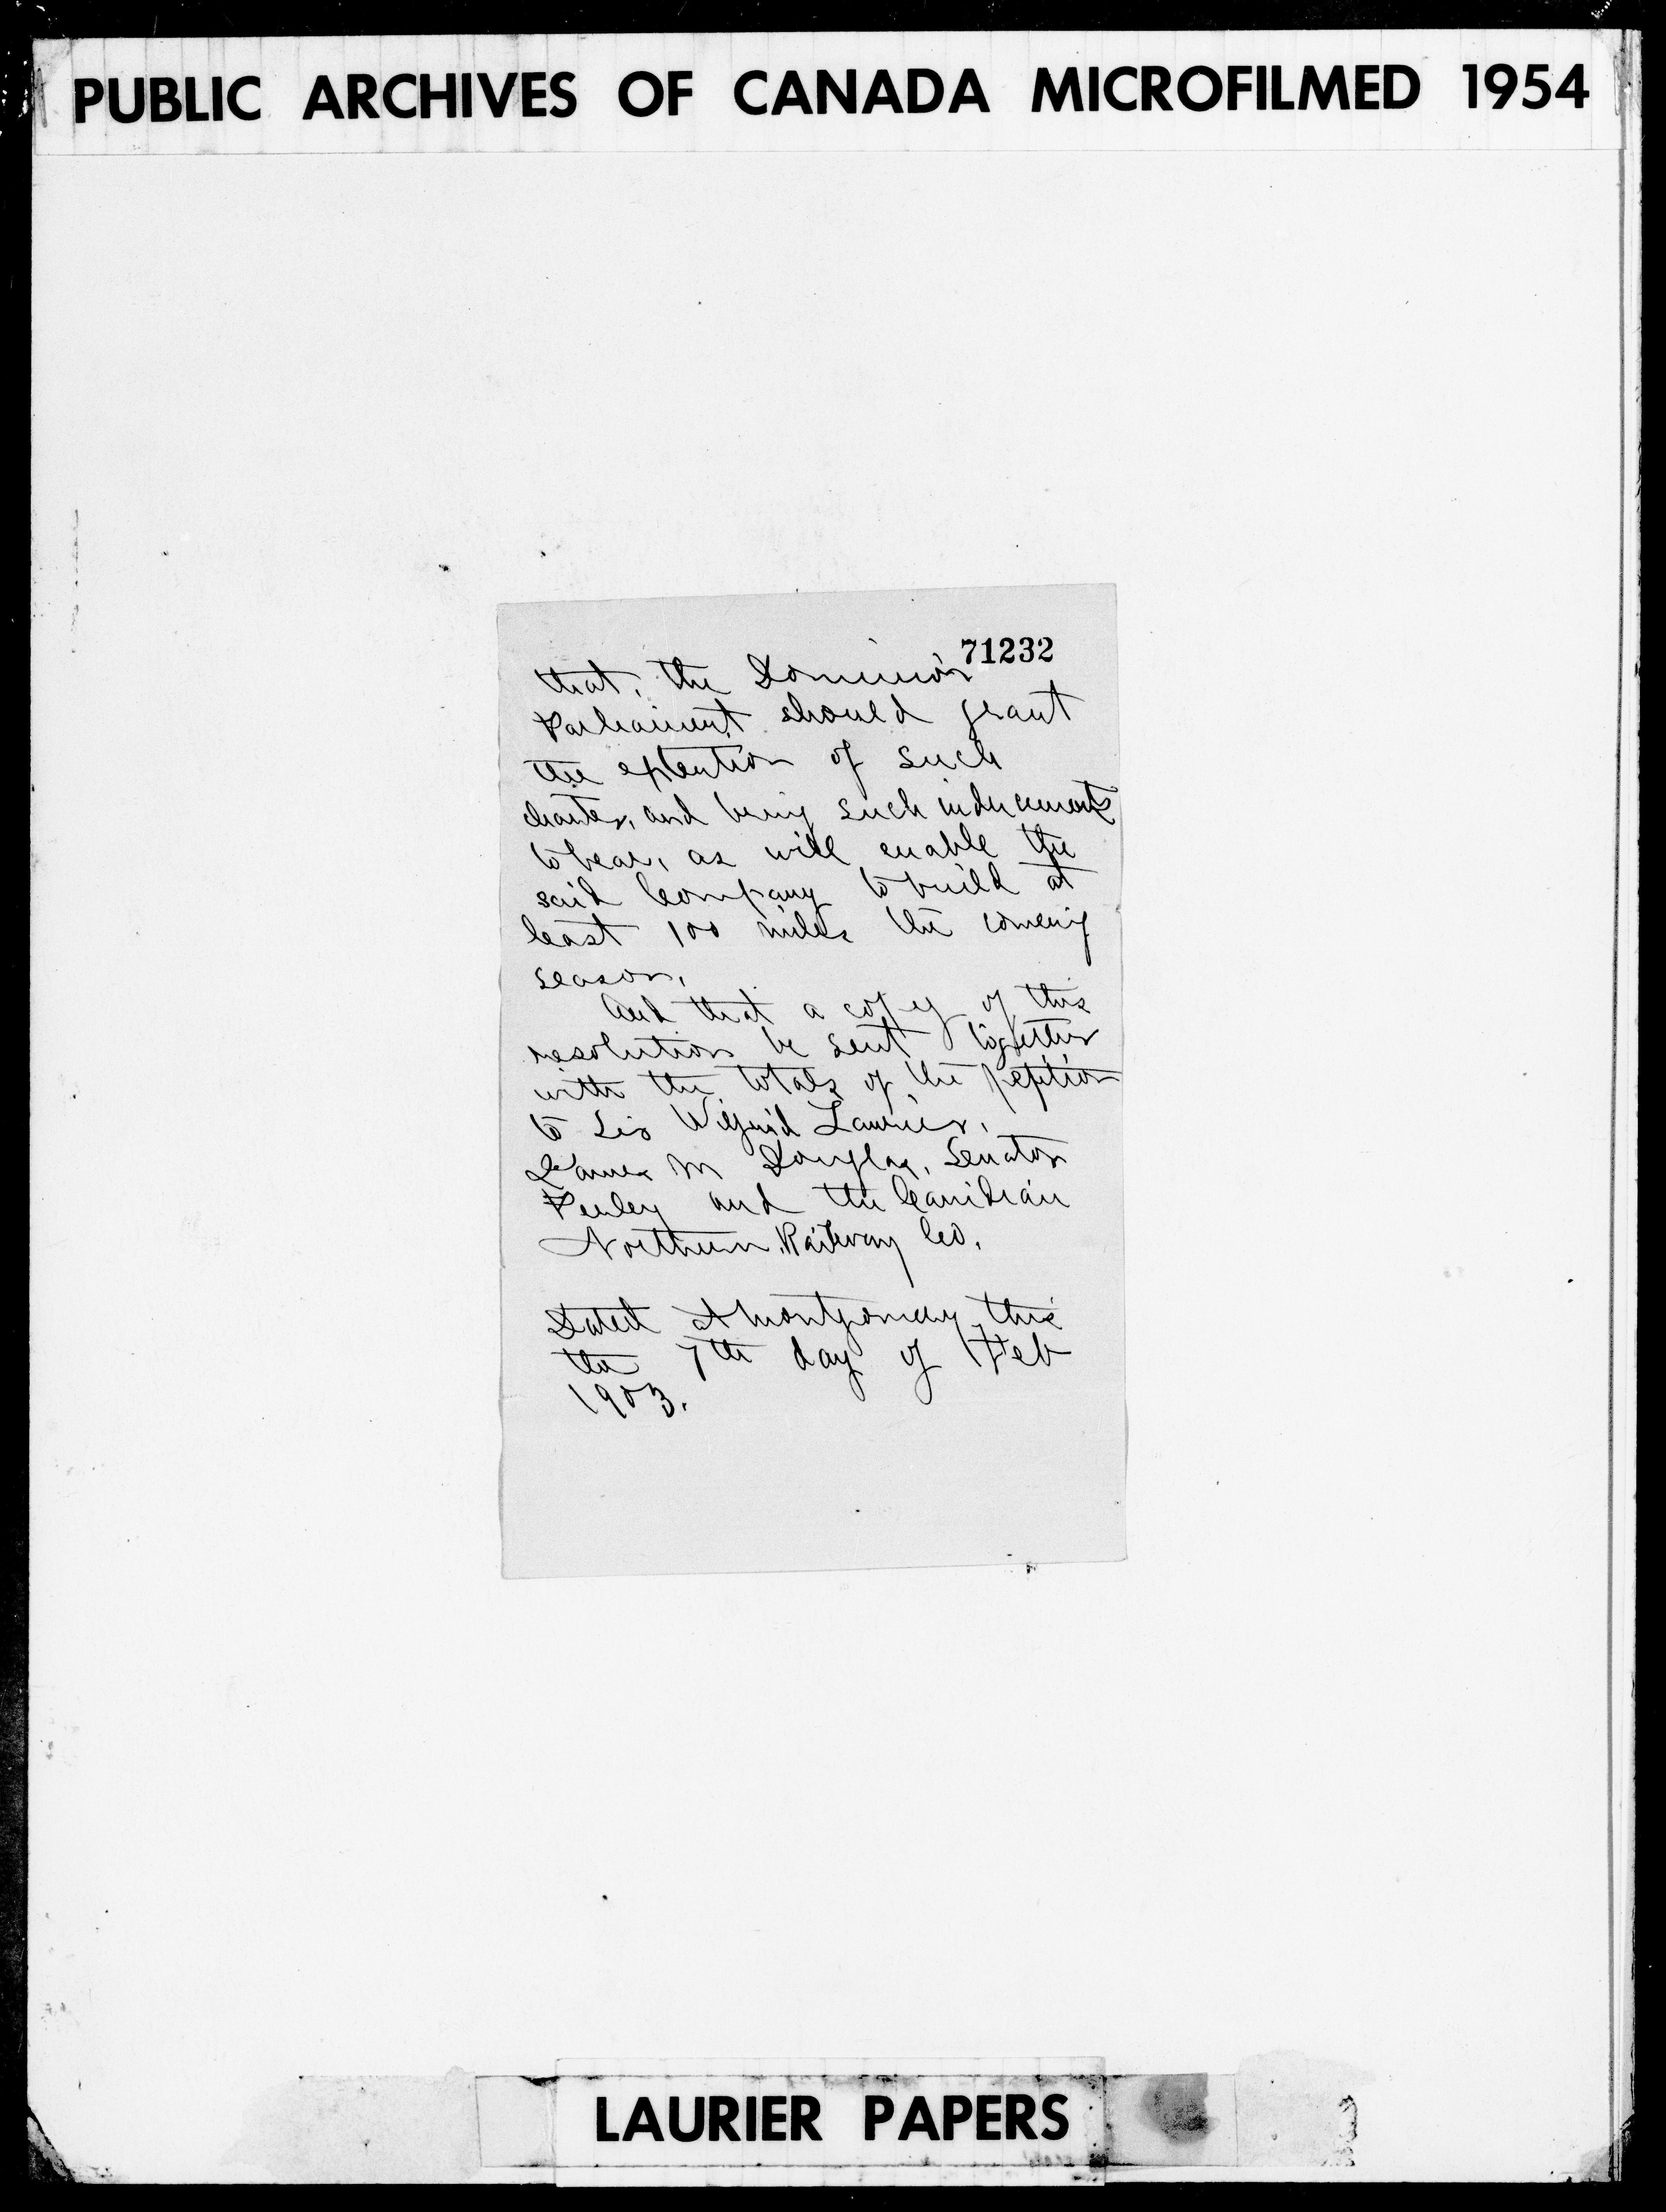 PUBLIC ARCHIVES OF CANADA MICROFILMED 1954
71232
that, the Dominion
Parliament should grant
the extention of such
charter, and bring such inducements
to bear, as will enable the
said Company to build at
least 100 miles the coming
season,
And that a copy of this
resolution be sent together
with the totals of the petition
to Sir Wilfrid Laurier,
James M Douglas, Senator
Perley and the Canidian
Northern Railway Co.
Dated at Montgomery this
the 7th day of Feb
1903.
LAURIER PAPERS